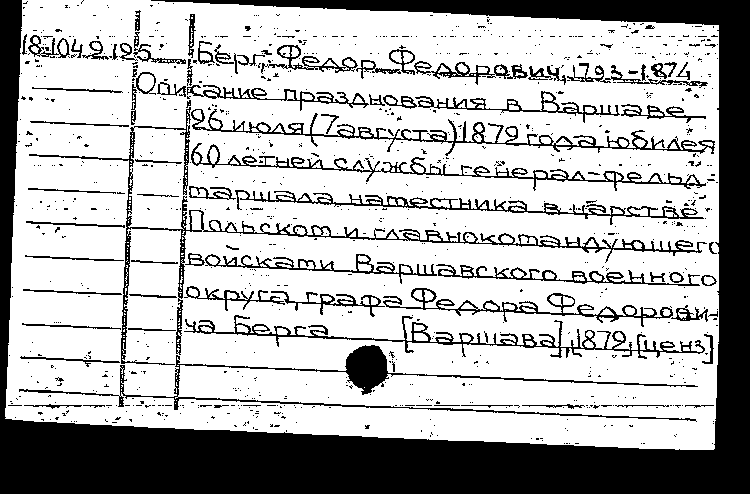 18.104.9.195 Берг, Федор Федорович, 1793-1874
Описание празднования в Варшаве,
26 июля (7 августа) 1872 года, юбилея
60 летней службы генерал-фельд-
маршала наместника в царстве
Польском и главнокомандующего
войсками Варшавского военного
округа, графа Федора Федорови-
ча Берга [Варшава], 1872, [ценз]